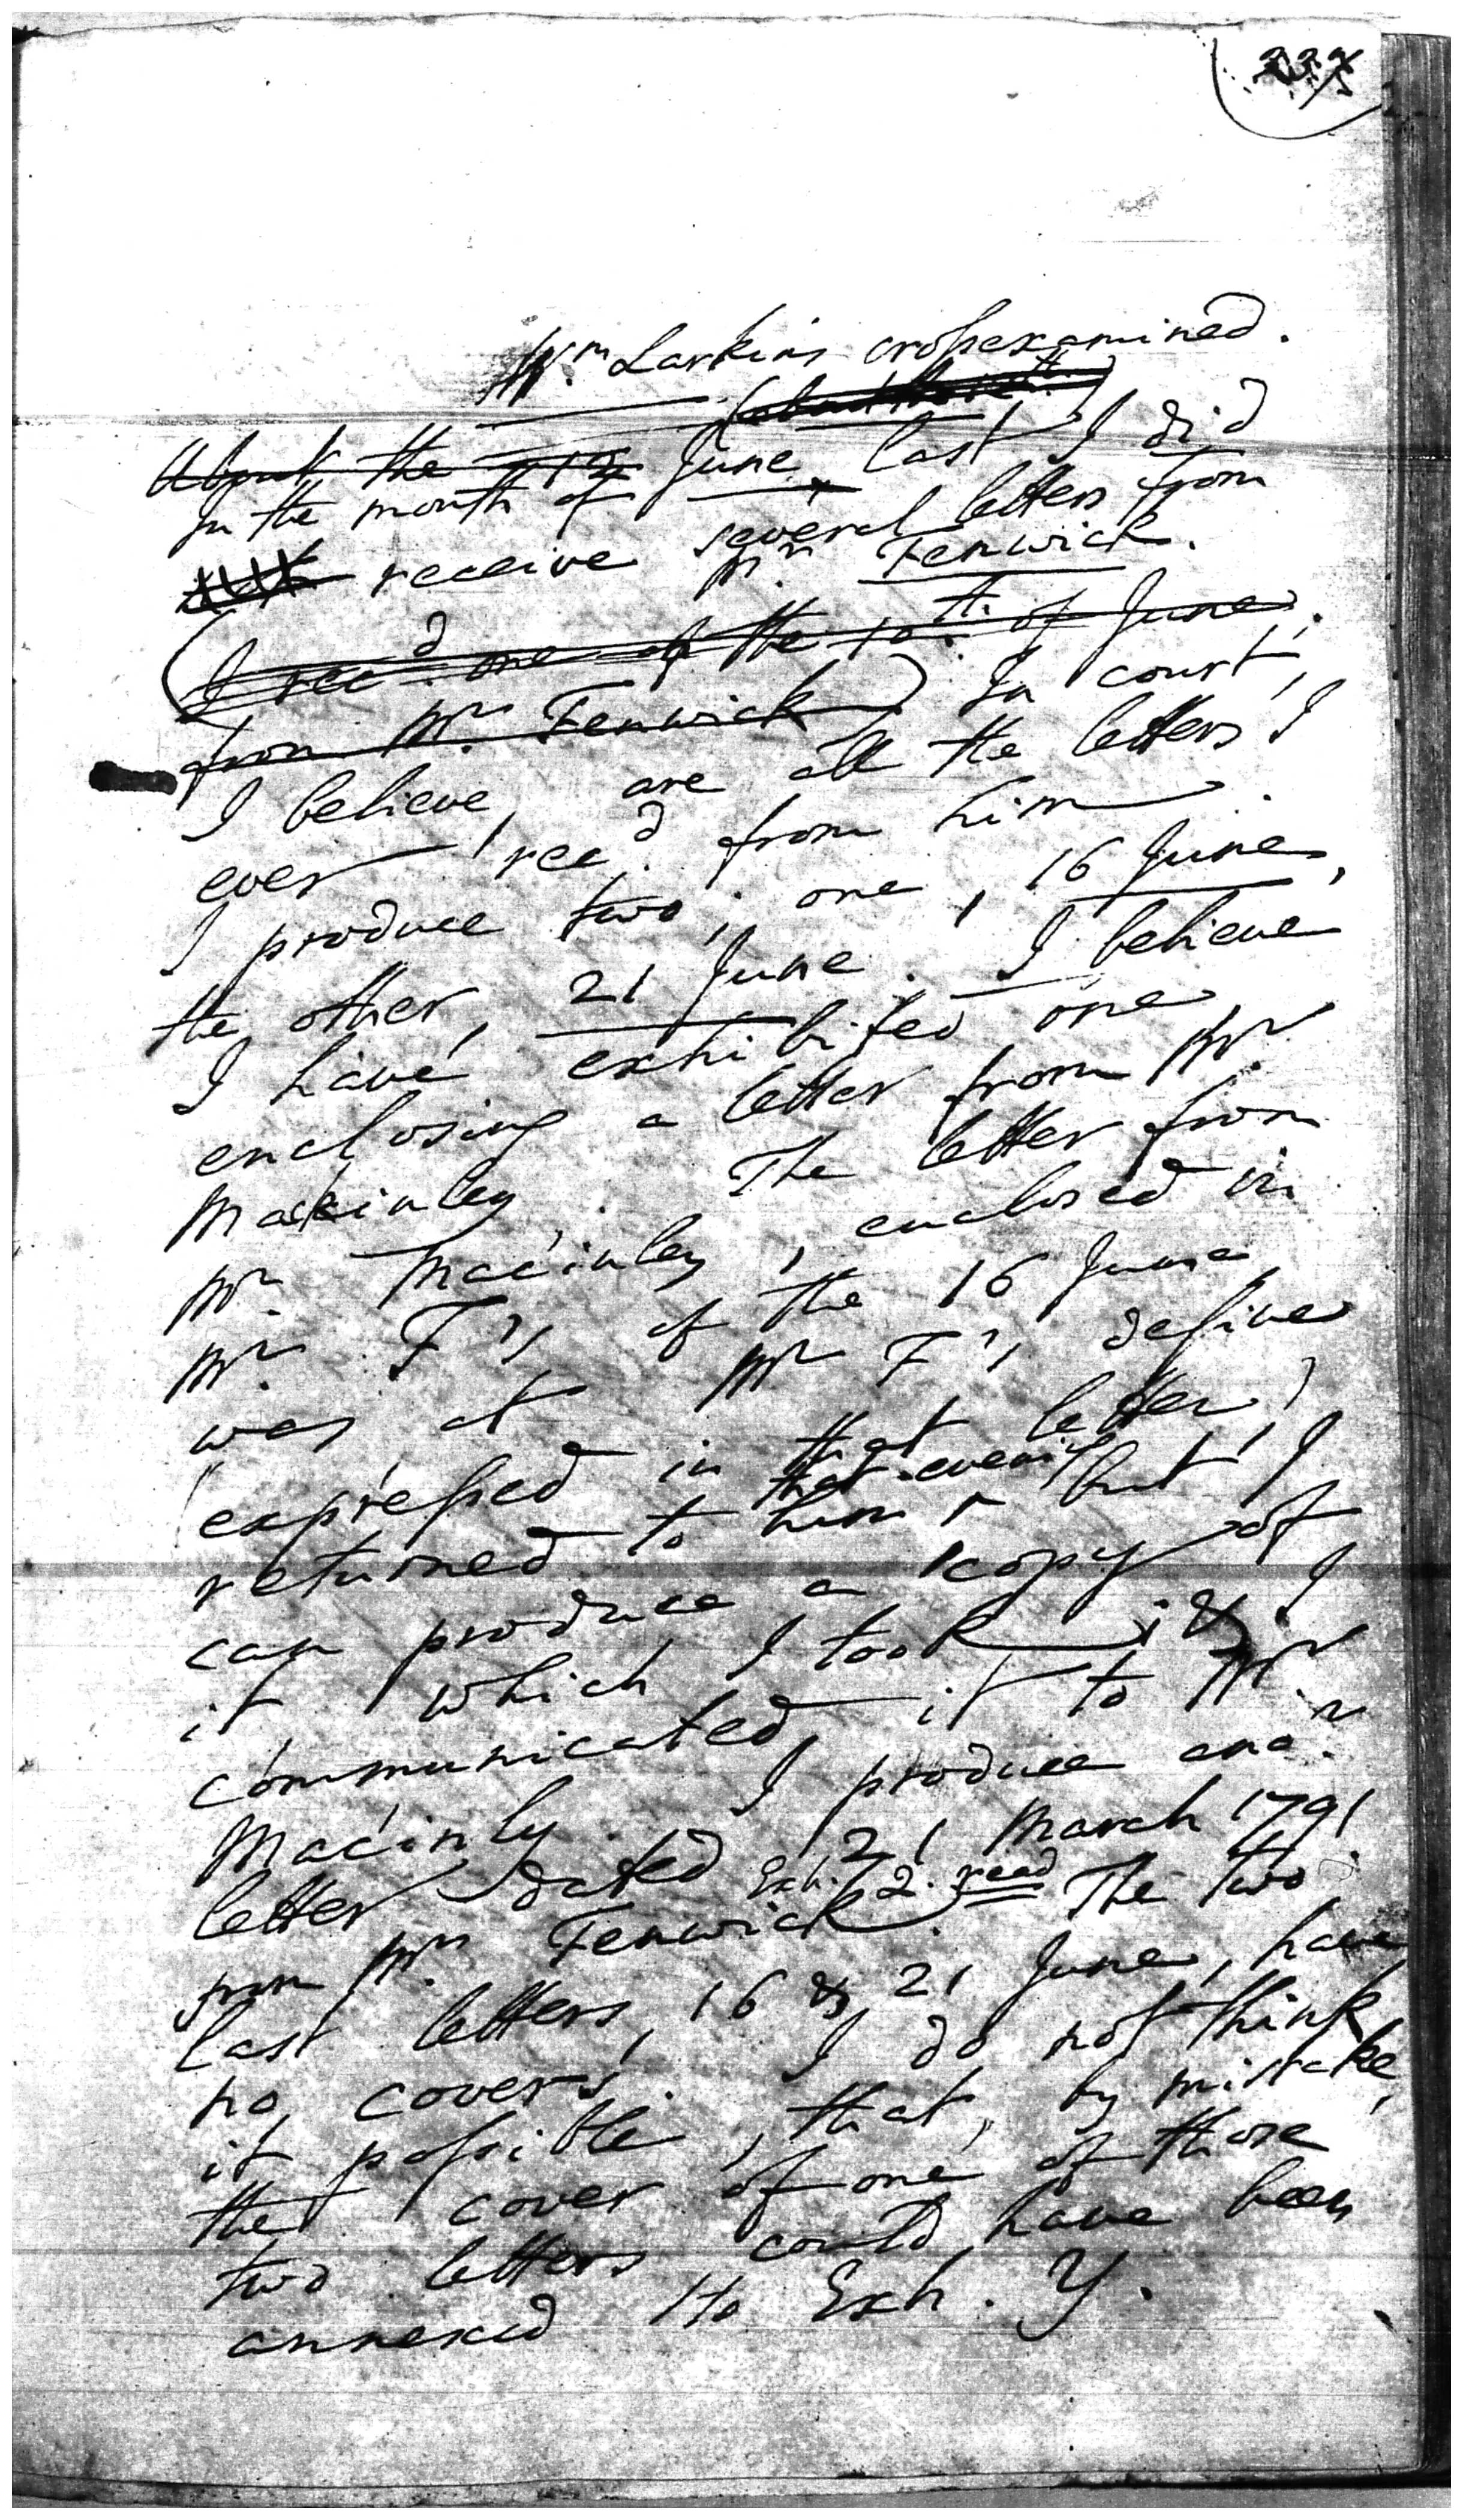 Wm Larkins crossexamined.
About the 10 June last I did
In the month of
receive several letters from
Mr. Fenwick.
(I recd. one of the 10th. of June,
from Mr. Fenwick) In court,
I believe, are all the letters I
ever recd. from him.
I produce two; one, 16 June,
the other, 21 June. I believe
I have exhibited one
enclosing a letter from Mr.
Mackinley. The letter from
Mr. Macinley, enclosed in
Mr. F's, of the 16 June
was at Mr F's, desire
expressed in that letter,
returned to him that evening but I
can produce a copy of
it which I took; & I
communicated it to Mr
Macinly. I produce anor.
letter dated 21 March 1791
from Mr. Fenwick. Exh. 2. read The two
last letters, 16 & 21 June, have
no covers. I do not think
it possible, that, by mistake,
the cover of one of those
two letters could have been
annexed to Exh. Y.